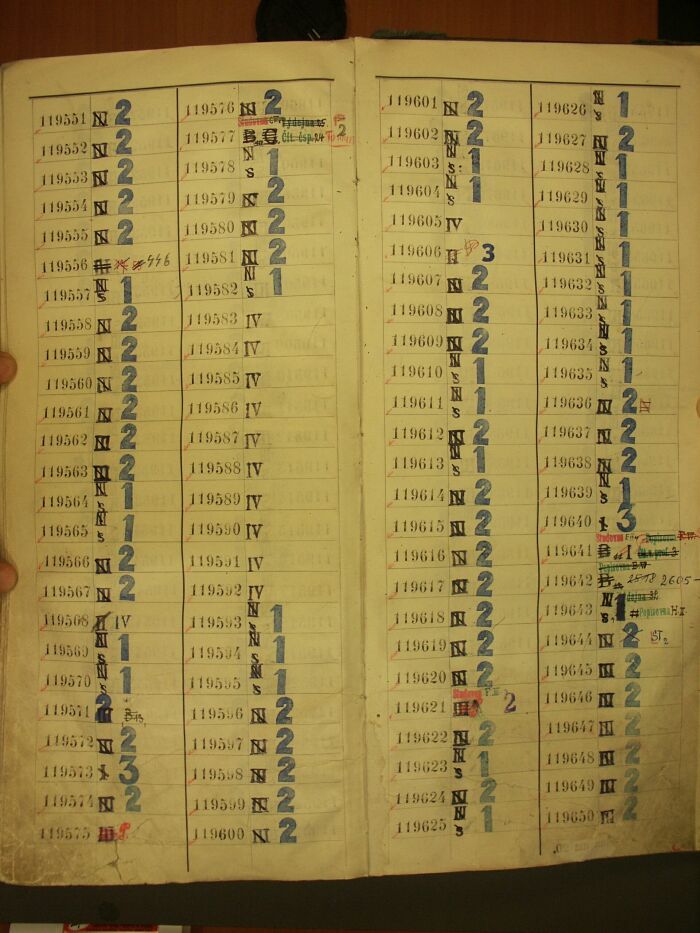 119551 N 2
119552 N 2
119553 N 2
119554 N 2
119555 N 2
119556 446
119557 N s 1
119558 N 2
119559 N 2
119560 N 2
119561 N 2
119562 N 2
119563 N 2
119564 N s 1
119565 N s 1
119566 N 2
119567 N 2
119568 II IV
119569 N s 1
119570 N s 1
119571 III 2
119572 N 2
119573 1 3
119574 N 2
119575 III
119576 N 2
119577 B Čít. čsp. 24 2
119578 N s 1
119579 N 2
119580 N 2
119581 N 2
119582 N s 1
119583 IV
119584 IV
119585 IV
119586 IV
119587 IV
119588 IV
119589 IV
119590 IV
119591 IV
119592 IV
119593 N s 1
119594 N s 1
119595 N s 1
119596 N 2
119597 N 2
119598 N 2
119599 N 2
119600 N 2
119601 N 2
119602 N 2
119603 N s 1
119604 N s 1
119605 IV
119606 II 3
119607 N 2
119608 N 2
119609 N 2
119610 N s 1
119611 N s 1
119612 N 2
119613 N s 1
119614 N 2
119615 N 2
119616 N 2
119617 N 2
119618 N 2
119619 N 2
119620 N 2
119621 Studovna III 2
119622 N 2
119623 N s 1
119624 N 2
119625 N s 1
119626 N s 1
119627 N 2
119628 N s 1
119629 N s 1
119630 N s 1
119631 N s 1
119632 N s 1
119633 N s 1
119634 N s 1
119635 N s 1
119636 N 2 N
119637 N 2
119638 N 2
119639 N s 1
119640 1 3
Studovna Popisovna
119641 B 1
Popisovna
119642 B 2518 2605
119643 N s 1 Popisovna H.I.
119644 N 2 ST 2
119645 N 2
119646 N 2
119647 N 2
119648 N 2
119649 N 2
119650 N 2